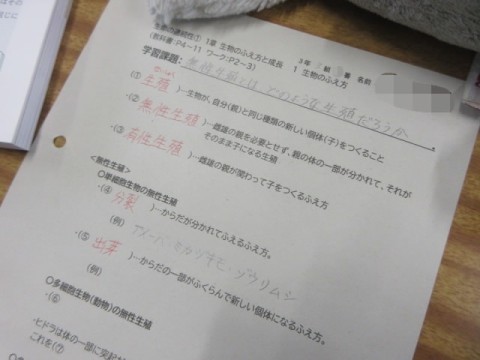 の連続性① 1章 生物のふえ方と成長
(教科書:P4~11 ワーク:P2~3) 1 生物のふえ方
3年 組 番 名前
学習課題: 無性生殖とはどのような生殖だろうか。
・(① 生殖 )…生物が、自分(親)と同じ種類の新しい個体(子)をつくること
・(② 無性生殖 )…雌雄の親を必要とせず、親の体の一部が分かれて、それが
そのまま子になる生殖
・(③ 有性生殖 )…雌雄の親が関わって子をつくるふえ方
<無性生殖>
○単細胞生物の無性生殖
・(④ 分裂 )…からだが分かれてふえるふえ方。
(例) アメーバ・ミカヅキモ・ゾウリムシ
・(⑤ 出芽 )…からだの一部がふくらんで新しい個体になるふえ方。
(例)
○多細胞生物(動物)の無性生殖
・(⑥
ヒドラは体の一部に突起が
これを(⑦